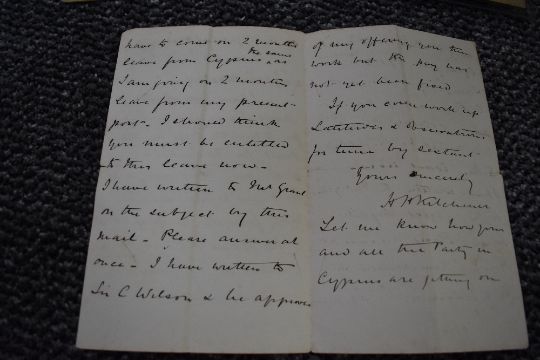 have to come on 2 months
the same
leave from Cyprus, as
I am going on 2 months
leave from my present
post - I should think
you must be entitled
to this leave now -
I have written to Mr Grove
on the subject by this
mail - Please answer at
once - I have written to
Sir C Wilson & he approves
of my offering you the
work but the pay has
not yet been fixed
If you could work up
Latitudes & observations
for time by sextant
Yours sincerely
H H Kitchener
Let me know how you
and all the Party in
Cyprus are getting on